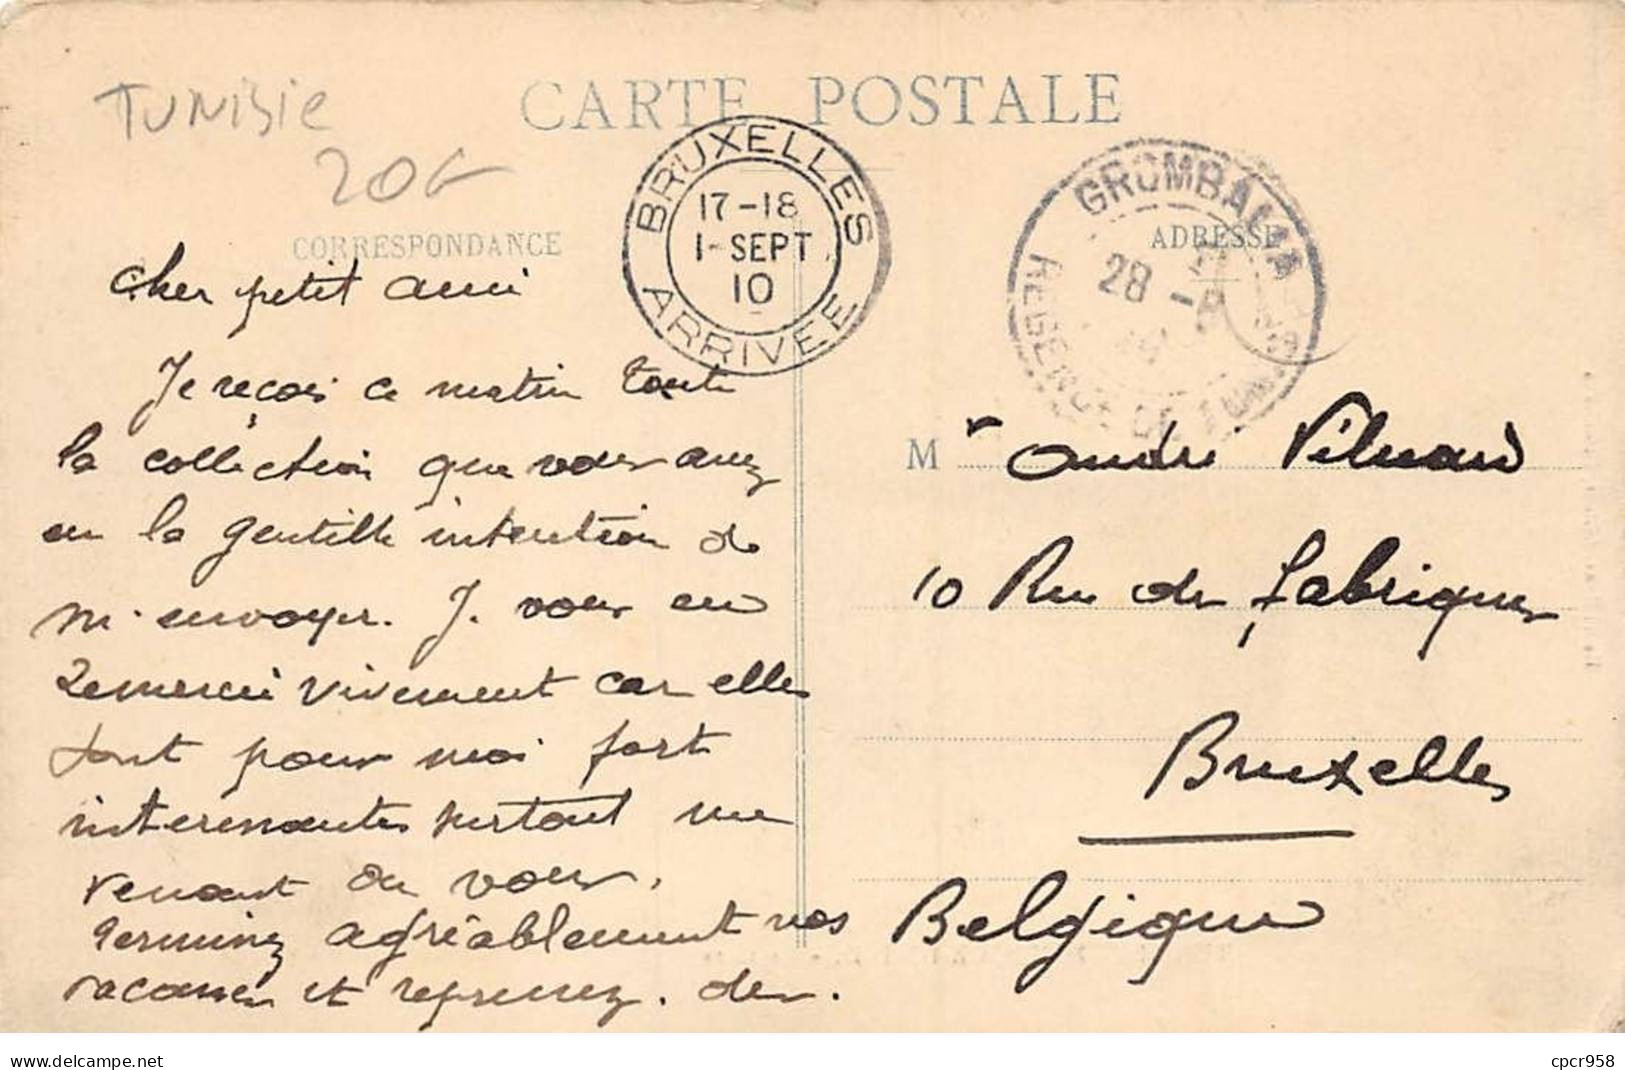 TUNISIE
CARTE POSTALE
BRUXELLES
17-18
1-SEPT
10
ARRIVEE
GROMBALIA
28 -8
REGENCE DE TUNIS
CORRESPONDANCE
ADRESSE
Cher petit ami
Je reçois ce matin toute
la collection que vous avez
eu la gentille intention de
m'envoyer. Je vous en
remercie vivement car elles
sont pour moi fort
interessantes surtout me
venant de vous.
Terminez agréablement vos
vacances et reprenez. des.
M r André
10 Rue des fabriques
Bruxelles
Belgique
cpcr958